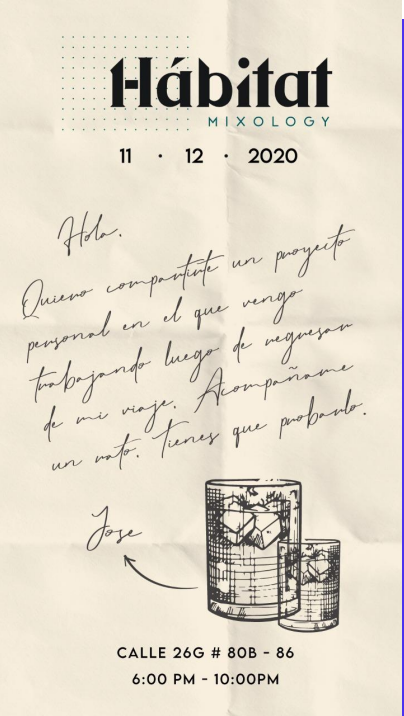 Hábitat
MIXOLOGY
11 · 12 · 2020
Hola.
Quiero compartirte un proyecto
personal en el que vengo
trabajando luego de regresar
de mi viaje. Acompañame
un rato. Tienes que probarlo.
Jose
CALLE 26G # 80B - 86
6:00 PM - 10:00PM